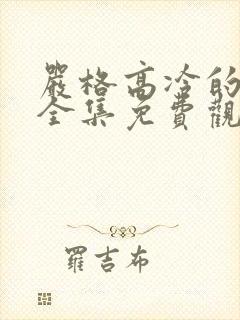 嚴格高冷的
全集免費觀
羅吉布